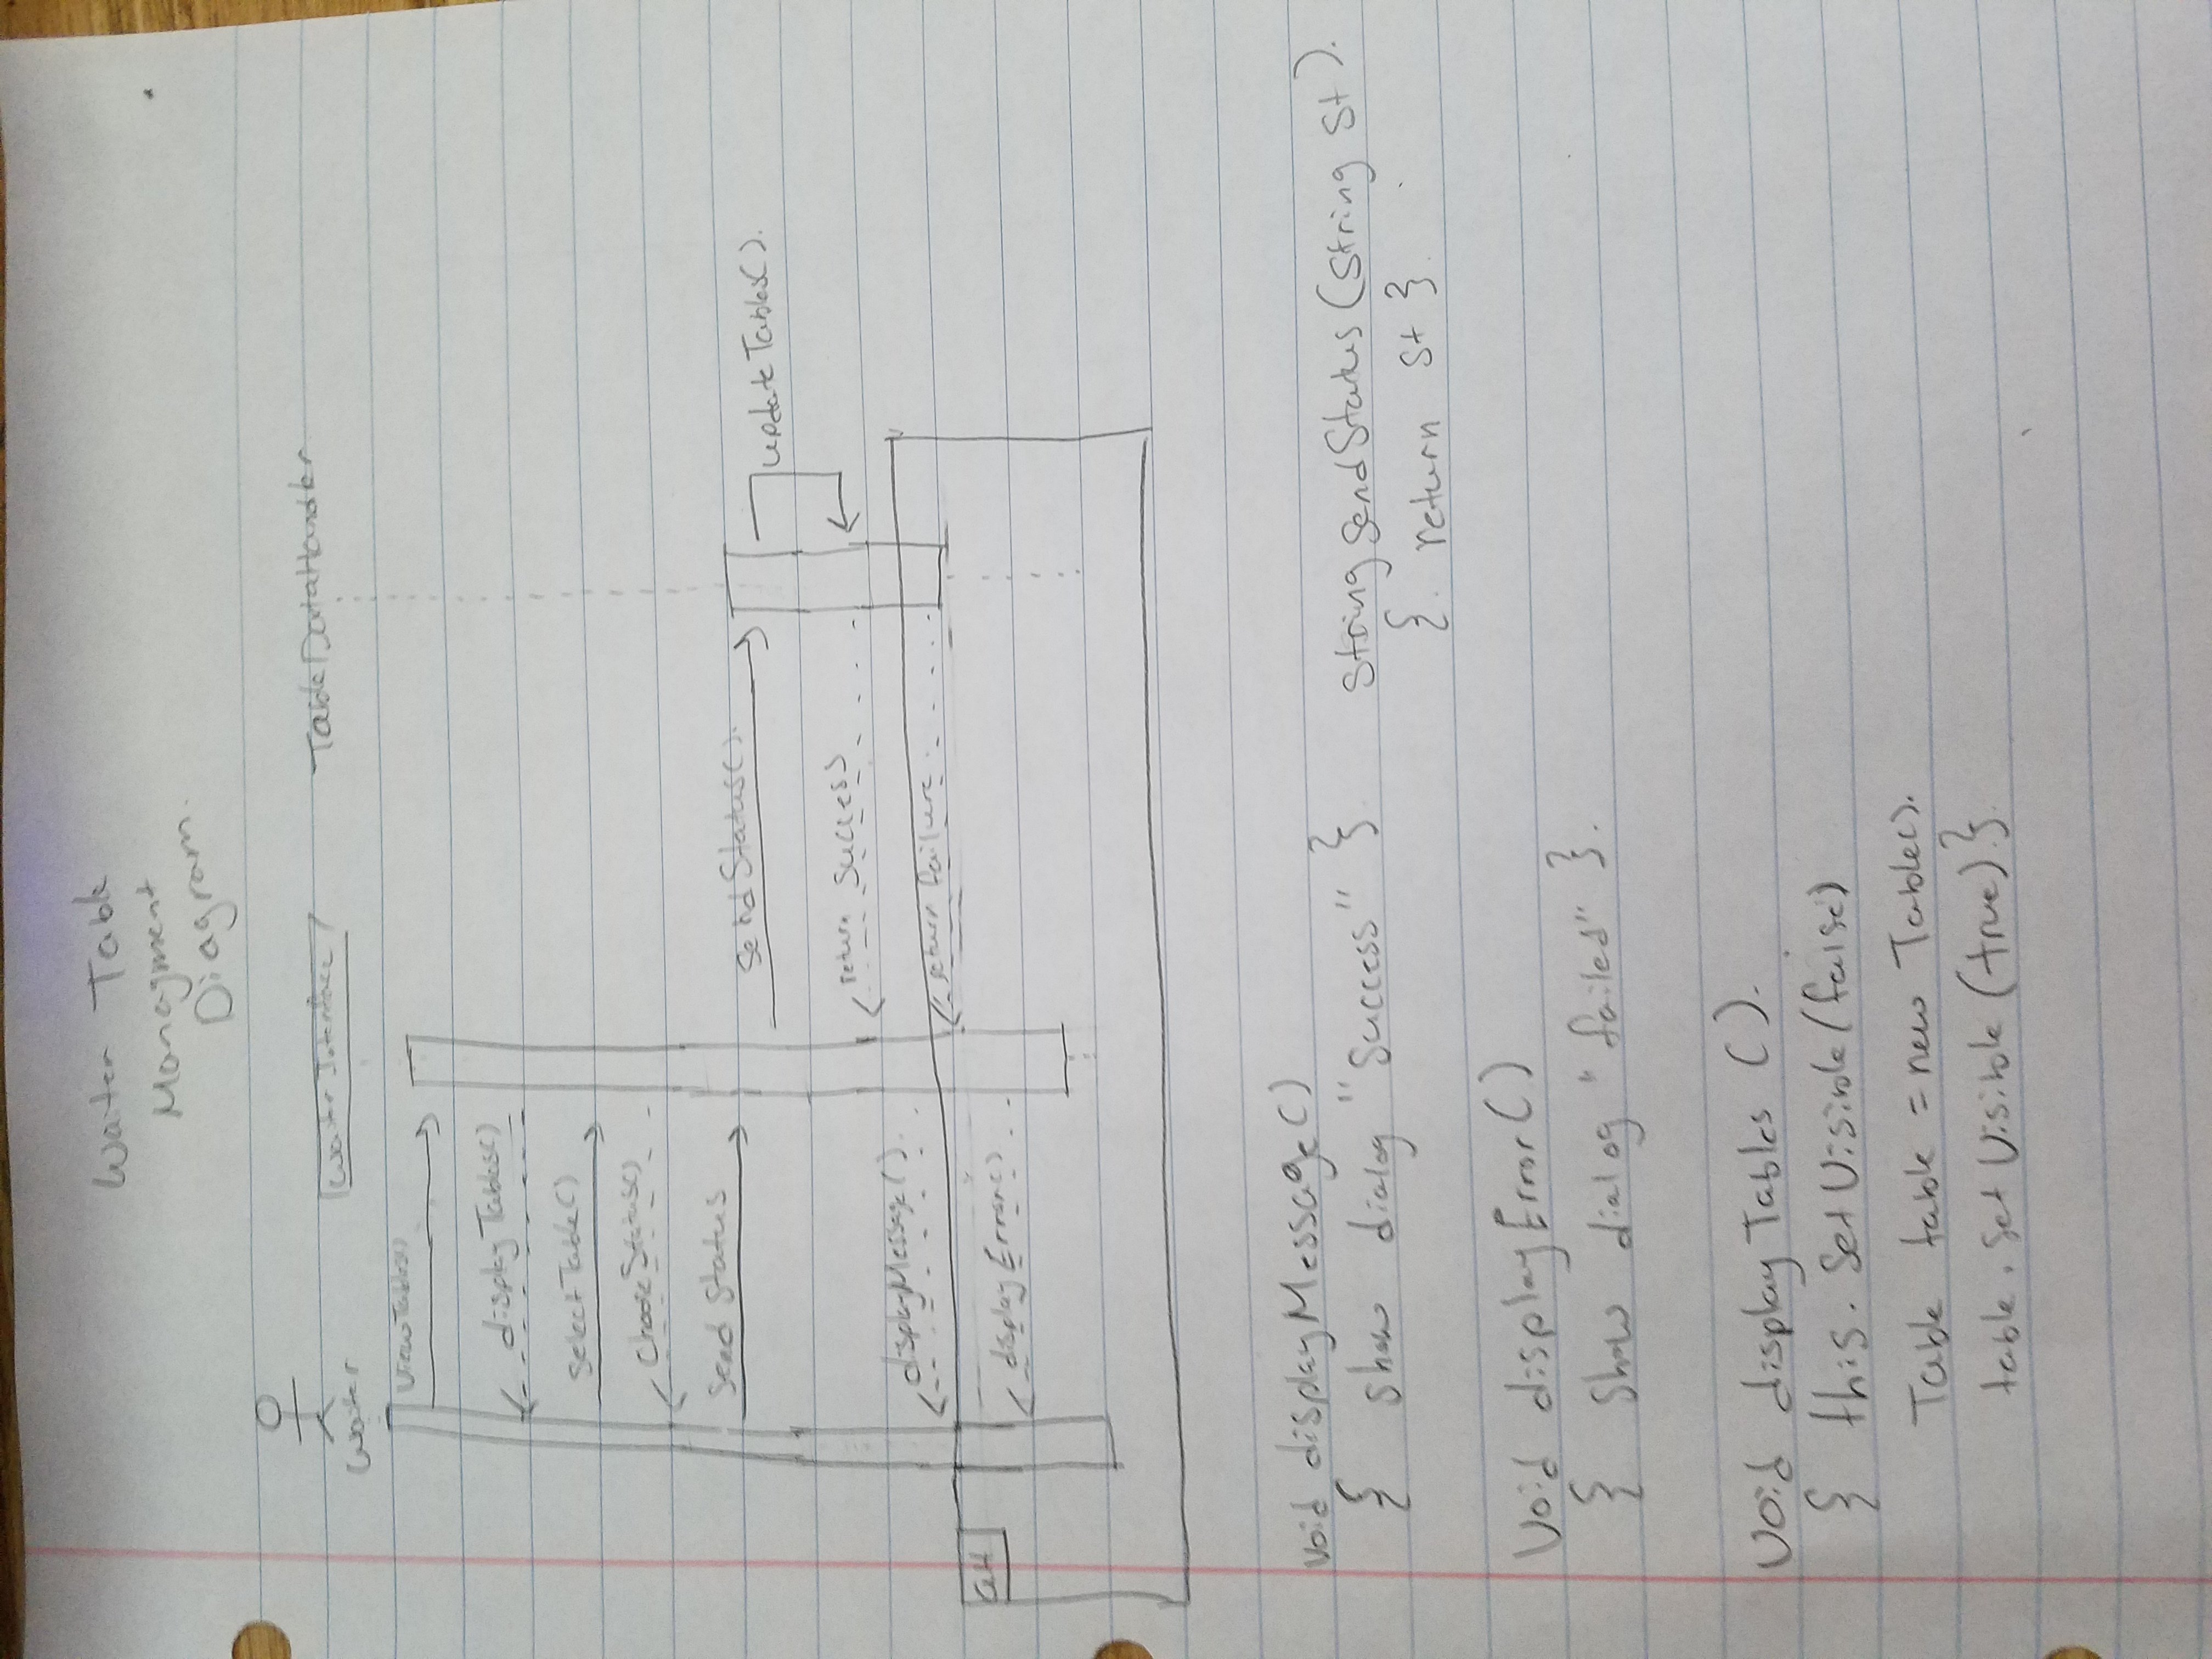 Waiter Table
Managment
Diagram.
Waiter
Waiter Interface
TableDataHandler
ViewTables()
displayTables()
SelectTable()
ChooseStatus()
Send Status
SendStatus().
updateTables().
return Success
displayMessage().
return failure
alt
displayError()
void displayMessage()
{ show dialog "Success" }
String sendStatus (String St).
{. return St }.
Void displayError()
{ Show dialog "failed" }.
Void displayTables ().
{ this. SetVisible(false)
Table table = new Table().
table. Set Visible (true) }.